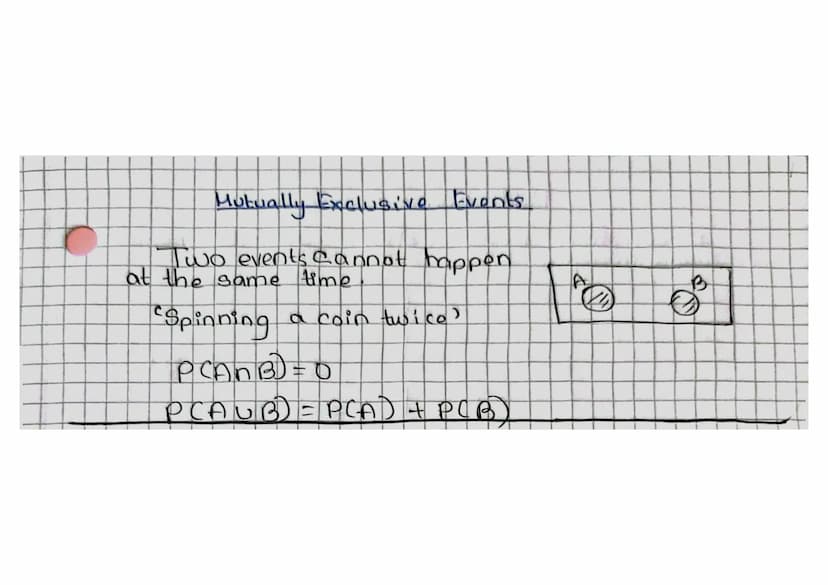 Mutually Exclusive Events
Two events cannot happen
at the same time.
"Spinning a coin twice"
P(A∩B) = 0
P(A∪B) = P(A) + P(B)
A B